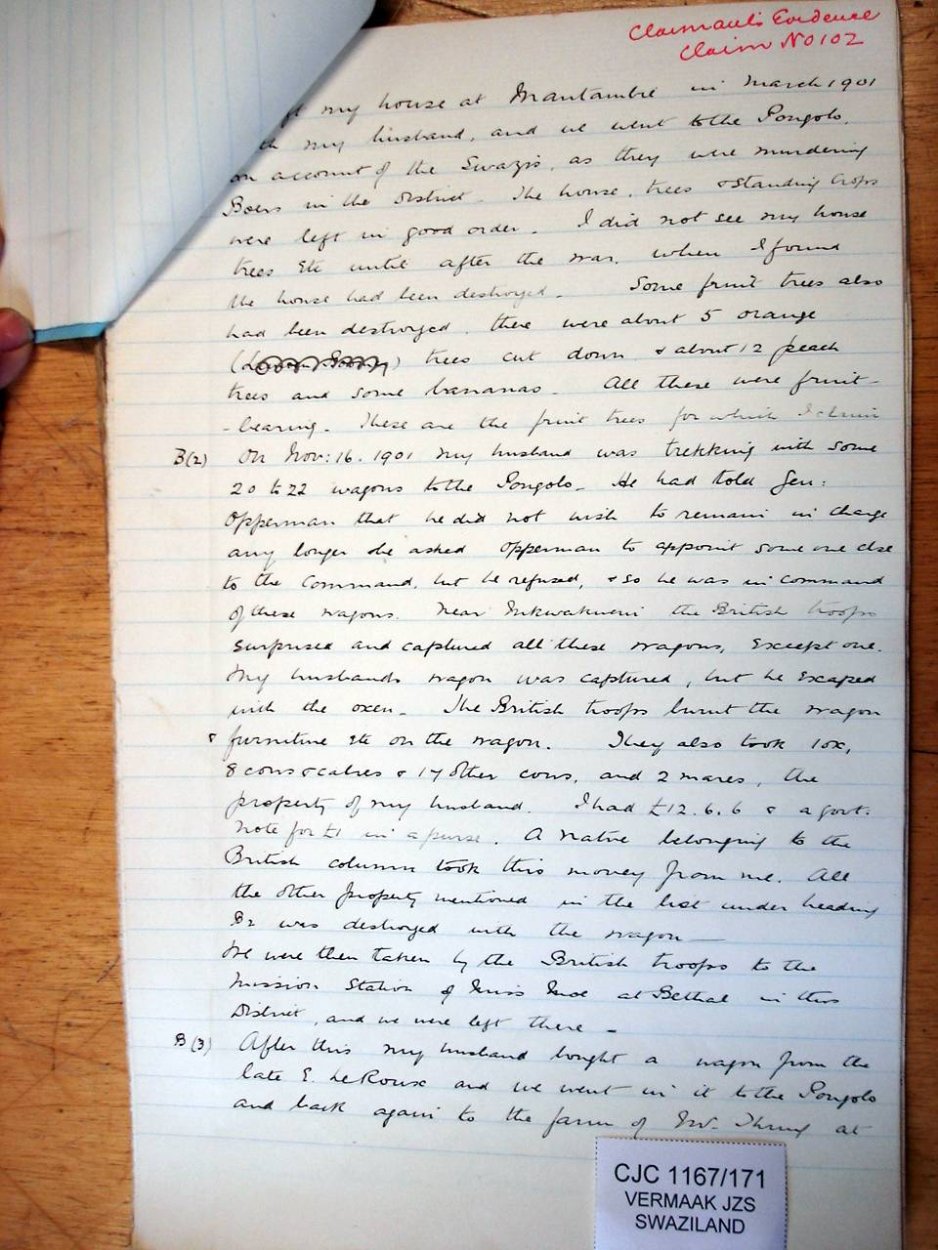 Claimant's Evidence
Claim No 102
my house at Mantambe in March 1901
my husband, and we went to the Pongolo,
on account of the Swazis, as they were murdering
Boers in the District. The house, trees & standing crops
were left in good order. I did not see my house
trees etc until after the war, when I found
the house had been destroyed. Some fruit trees also
had been destroyed, there were about 5 orange
trees cut down & about 12 peach
trees and some bananas. All these were fruit-
-bearing. These are the fruit trees for which I claim
B(2) On Nov: 16. 1901 my husband was trekking with some
20 to 22 wagons to the Pongolo. He had told Gen:
Opperman that he did not wish to remain in charge
any longer & he asked Opperman to appoint some one else
to the Command, but he refused, & so he was in command
of these wagons. Near the British troops
surprised and captured all these wagons, except one.
My husbands wagon was captured, but he escaped
with the oxen. The British troops burnt the wagon
& furniture etc on the wagon. They also took 1 ox,
8 cows & calves & 17 other cows, and 2 mares, the
property of my husband. I had £12.6.6 & a govt.
note for £1 in a purse. A native belonging to the
British column took this money from me. All
the other property mentioned in the list under heading
B2 was destroyed with the wagon —
We were then taken by the British troops to the
Mission Station of Miss Moe at Bethal in this
District, and we were left there –
B(3) After this my husband bought a wagon from the
late E. Le Roux and we went in it to the Pongolo
and back again to the farm of at
CJC 1167/171
VERMAAK JZS
SWAZILAND